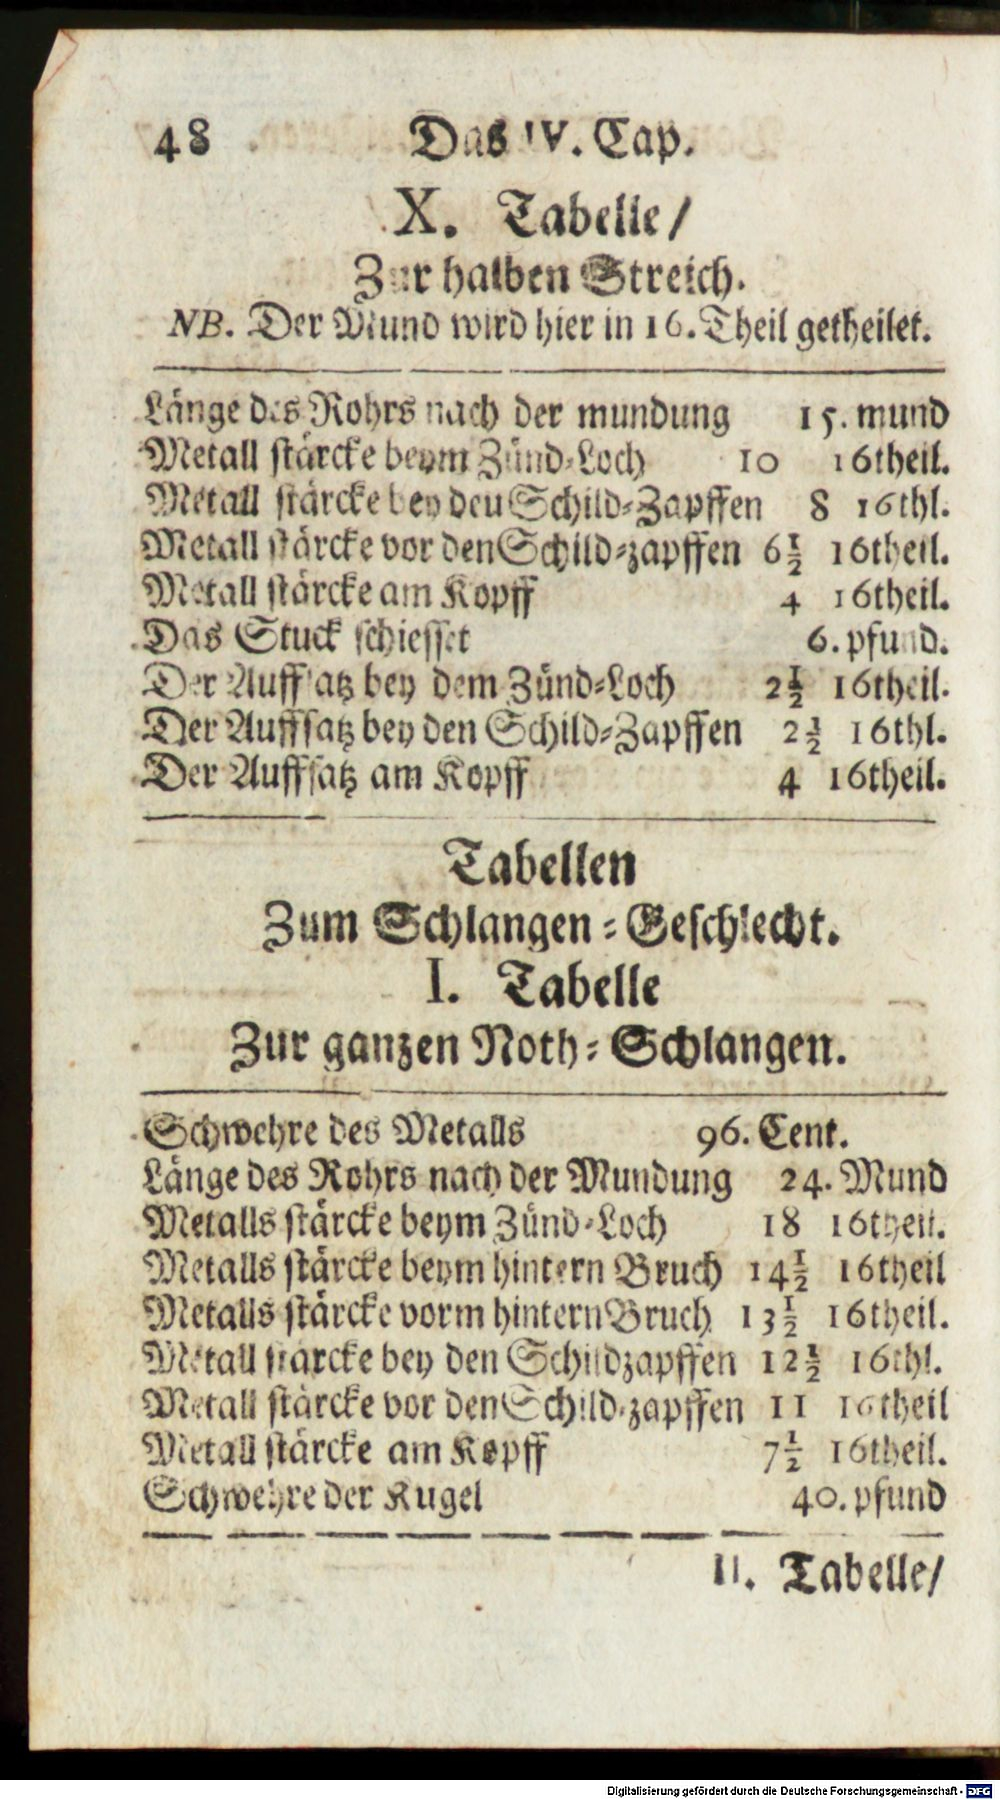 48 Das IV. Cap.
X. Tabelle/
Zur halben Streich.
NB. Der Mund wird hier in 16. Theil getheilet.
Länge des Rohrs nach der mundung 15. mund
Metall stärcke beym Zünd-Loch 10 16theil.
Metall stärcke bey den Schild-Zapffen 8 16thl.
Metall stärcke vor den Schild-zapffen 6½ 16theil.
Metall stärcke am Kopff 4 16theil.
Das Stuck schiesset 6. pfund.
Der Auffsatz bey dem Zünd-Loch 2½ 16theil.
Der Auffsatz bey den Schild-Zapffen 2½ 16thl.
Der Auffsatz am Kopff 4 16theil.
Tabellen
Zum Schlangen-Geschlecht.
I. Tabelle
Zur ganzen Noth-Schlangen.
Schwehre des Metalls 96. Cent.
Länge des Rohrs nach der Mundung 24. Mund
Metalls stärcke beym Zünd-Loch 18 16theil.
Metalls stärcke beym hintern Bruch 14½ 16theil
Metalls stärcke vorm hintern Bruch 13½ 16theil.
Metall stärcke bey den Schildzapffen 12½ 16thl.
Metall stärcke vor den Schild-zapffen 11 16theil
Metall stärcke am Kopff 7½ 16theil.
Schwehre der Kugel 40. pfund
II. Tabelle/
Digitalisierung gefördert durch die Deutsche Forschungsgemeinschaft - DFG